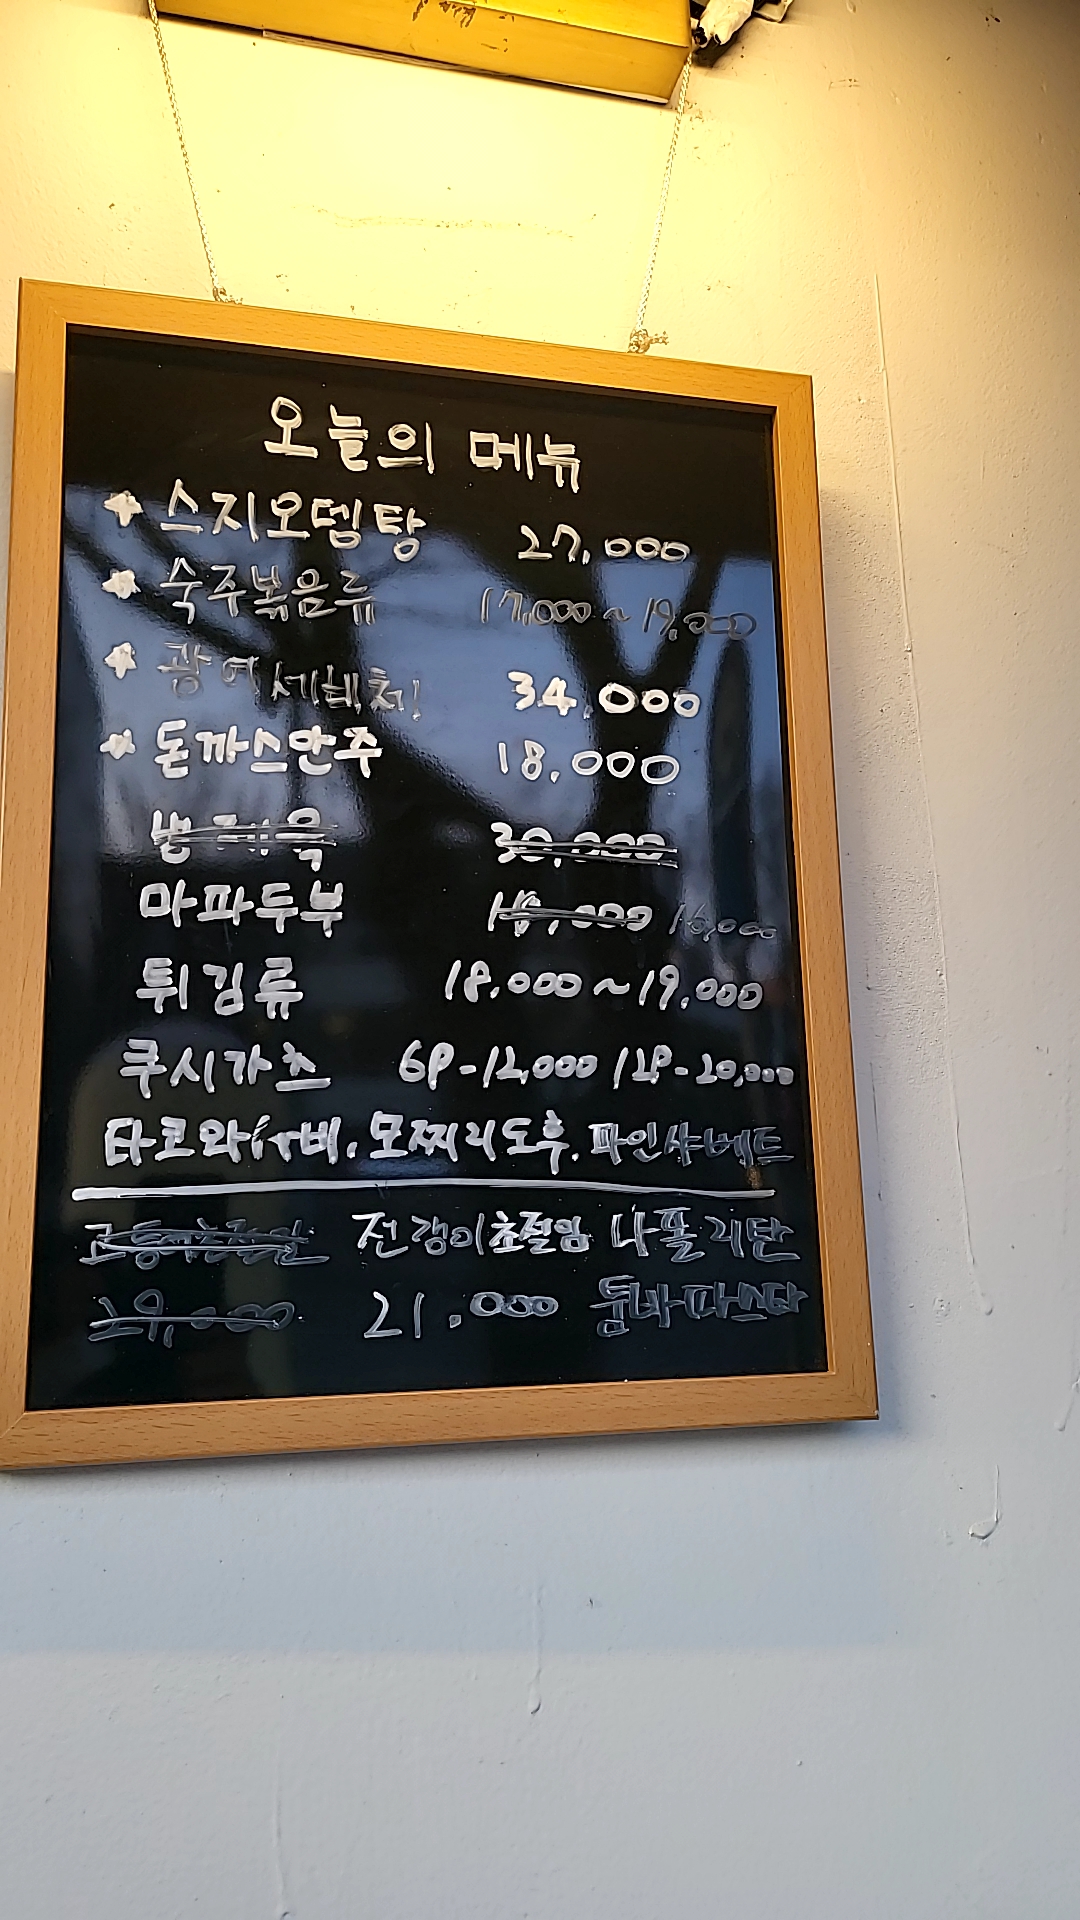 오늘의 메뉴
★ 스지오뎅탕 27,000
★ 숙주볶음류 17,000 ~ 19,000
★ 광어세비체 34,000
★ 돈까스안주 18,000
30,000
마파두부 18,000 16,000
튀김류 18,000 ~ 19,000
쿠시가츠 6P - 12,000 / 12P - 20,000
타코와사비, 모찌리도후, 파인샤베트
고등어초절임 전갱이초절임 나폴리탄
29,000 21,000 툼바파스타